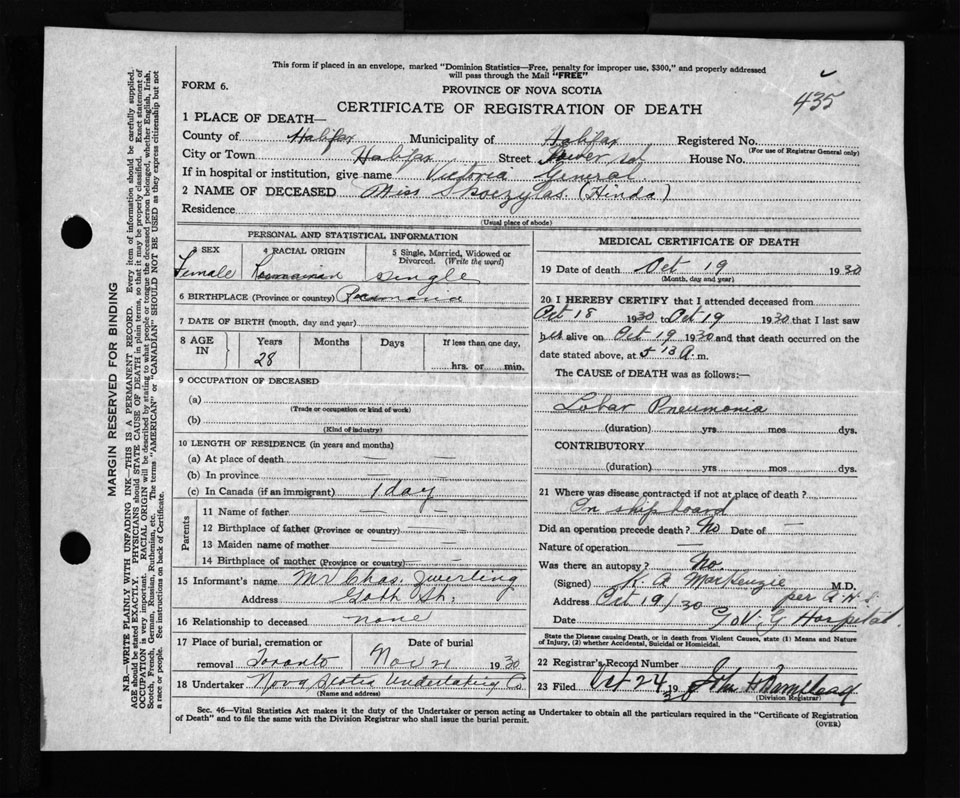 This form if placed in an envelope, marked "Dominion Statistics—Free, penalty for improper use, $300," and properly addressed
will pass through the Mail "FREE"
FORM 6.
PROVINCE OF NOVA SCOTIA
435
CERTIFICATE OF REGISTRATION OF DEATH
1 PLACE OF DEATH—
County of Halifax Municipality of Halifax Registered No.
(For use of Registrar General only)
City or Town Halifax Street Tower rd House No.
If in hospital or institution, give name Victoria General
2 NAME OF DECEASED Miss Skoezylas. (Hinda)
Residence
(Usual place of abode)
PERSONAL AND STATISTICAL INFORMATION
3 SEX 4 RACIAL ORIGIN 5 Single, Married, Widowed or
Divorced. (Write the word)
Female Roumanian single
6 BIRTHPLACE (Province or country) Roumania
7 DATE OF BIRTH (month, day and year)
8 AGE IN Years Months Days If less than one day,
28 hrs. or min.
9 OCCUPATION OF DECEASED
(a)
(Trade or occupation or kind of work)
(b)
(Kind of industry)
10 LENGTH OF RESIDENCE (in years and months)
(a) At place of death — —
(b) In province — —
(c) In Canada (if an immigrant) 1 day
Parents
11 Name of father — —
12 Birthplace of father (Province or country) —
13 Maiden name of mother —
14 Birthplace of mother (Province or country) —
15 Informant's name Mr Chas. Zwerling
Address Gott St.
16 Relationship to deceased none
17 Place of burial, cremation or Date of burial
removal Toronto Nov 21 1930
18 Undertaker Nova Scotia Undertaking Co
(Name and address)
MEDICAL CERTIFICATE OF DEATH
19 Date of death Oct 19 1930
(Month, day and year)
20 I HEREBY CERTIFY that I attended deceased from
Oct 18 1930 to Oct 19 1930 that I last saw
h er alive on Oct 19 1930 and that death occurred on the
date stated above, at 5 13 A. m.
The CAUSE of DEATH was as follows:—
Lobar Pneumonia
(duration) yrs mos dys.
CONTRIBUTORY
(duration) yrs mos dys.
21 Where was disease contracted if not at place of death?
On shipboard
Did an operation precede death? No Date of —
Nature of operation —
Was there an autopsy? No.
(Signed) K. A. MacKenzie M.D.
per
Address Oct 19/30
Date Hospital
State the Disease causing Death, or in death from Violent Causes, state (1) Means and Nature
of Injury, (2) whether Accidental, Suicidal or Homicidal.
22 Registrar's Record Number
23 Filed Oct 24 19 John
(Division Registrar)
Sec. 46—Vital Statistics Act makes it the duty of the Undertaker or person acting as Undertaker to obtain all the particulars required in the "Certificate of Registration
of Death" and to file the same with the Division Registrar who shall issue the burial permit.
(OVER)
MARGIN RESERVED FOR BINDING
N.B.—WRITE PLAINLY WITH UNFADING INK—THIS IS A PERMANENT RECORD. Every item of information should be carefully supplied.
AGE should be stated EXACTLY. PHYSICIANS should STATE CAUSE OF DEATH in plain terms, so that it may be properly classified. Exact statement of
OCCUPATION is very important. RACIAL ORIGIN will be described by stating to what people or tongue the deceased person belonged, whether English, Irish,
Scotch, French, German, Russian, Ruthenian, etc. The terms "AMERICAN" or "CANADIAN" SHOULD NOT BE USED as they express citizenship but not
a race or people. See instructions on back of Certificate.